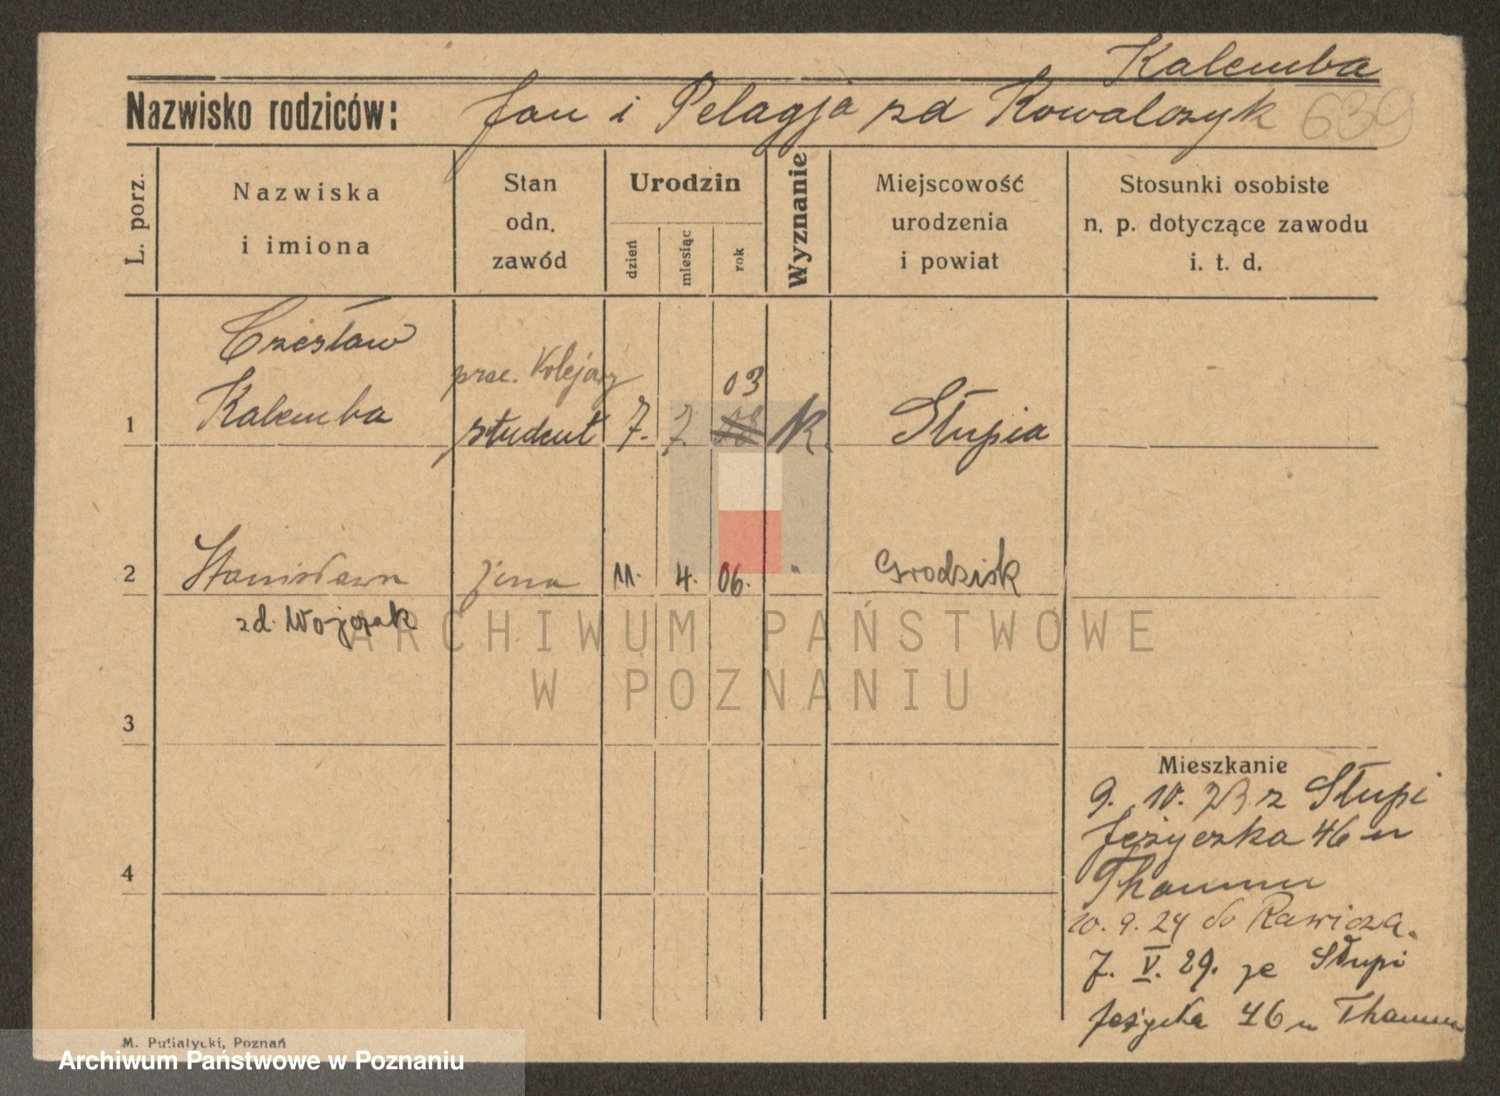 Kalemba
Nazwisko rodziców: Jan i Pelagja zd Kowalczyk 639
L. porz.
Nazwiska
i imiona
Stan
odn.
zawód
Urodzin
dzień
miesiąc
rok
Wyznanie
Miejscowość
urodzenia
i powiat
Stosunki osobiste
n. p. dotyczące zawodu
i. t. d.
Czesław
prac. Kolejowy
03
1 Kalemba student 7. 7. K. Słupia
2 Stanisława żona 11. 4. 06. Grodzisk
zd. Wojczak
ARCHIWUM PAŃSTWOWE
W POZNANIU
3
Mieszkanie
9. 10. 23 z Słupi
Jeżycka 46 u
4
Thamm
10. 9. 24 do Rawicza.
7. V. 29. ze Słupi
Jeżycka 46 u Thamm
M. Putiatycki, Poznań
Archiwum Państwowe w Poznaniu